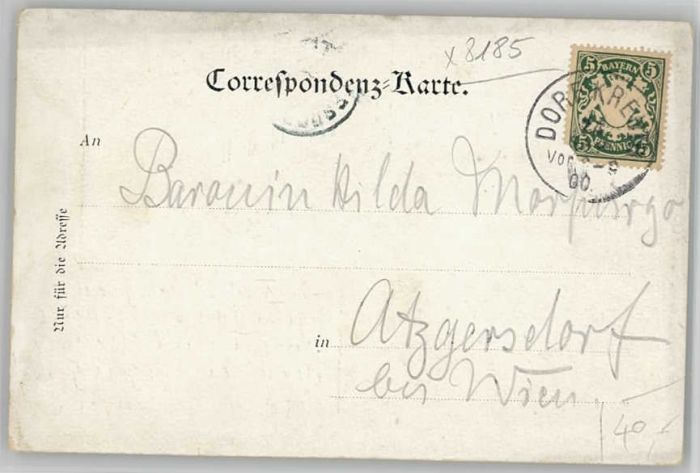 x 8185
Correspondenz-Karte.
5 BAYERN 5
5 PFENNIG 5
DOR KREUTH
VOR
00.
An
Baronin Hilda Morpurgo
Nur für die Adresse
in Atzgersdorf
bei Wien.
40,-